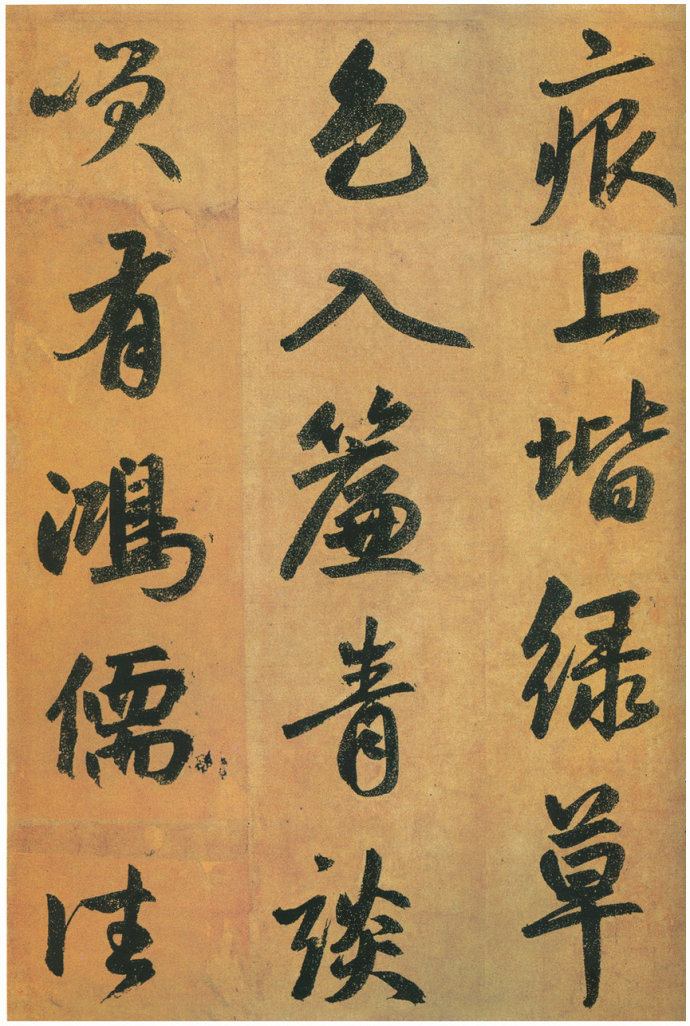 痕上堦緑草
色入簾青談
咲有鴻儒往